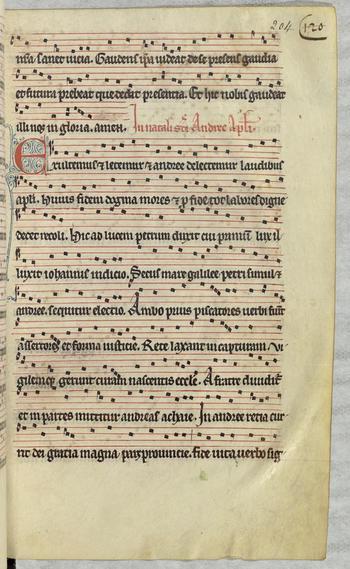 204 120
nisa sanet vicia. Gaudens ipa videat de se presens gaudia
et futura prebeat que decat presentia. Et hic nobis gaudeat
illi nos in gloria. amen. In natali sci Andree Apli
Exultemus & letemur & andree delectemur laudibus
apli. Huius fidem dogma mores & p fide tot labores digne
decet recoli. Hic ad lucem petrum duxit cui primum lux il
luxit iohannis indicio. Secus mare galilee petri simul &
andree. sequitur electio. Ambo prius piscatores verbi fiunt
assertores et forma iusticie. Rete laxant in capturam. vi
gilemq; gerunt curam nascentis eccle. A fratre dividit
et in partes mittitur andreas achaie. In andree retia cur
rit dei gratia magna pars provincie. fide vita verbo sig